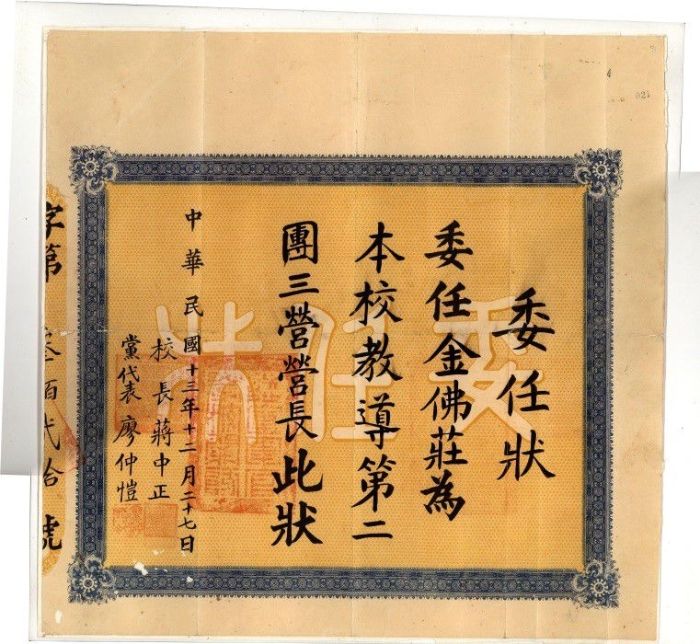 委任狀
委任金佛莊為
本校教導第二
團三營營長此狀
中華民國十三年十二月二十七日
校長蔣中正
黨代表廖仲愷
字第叁佰弍拾號
委任狀
021